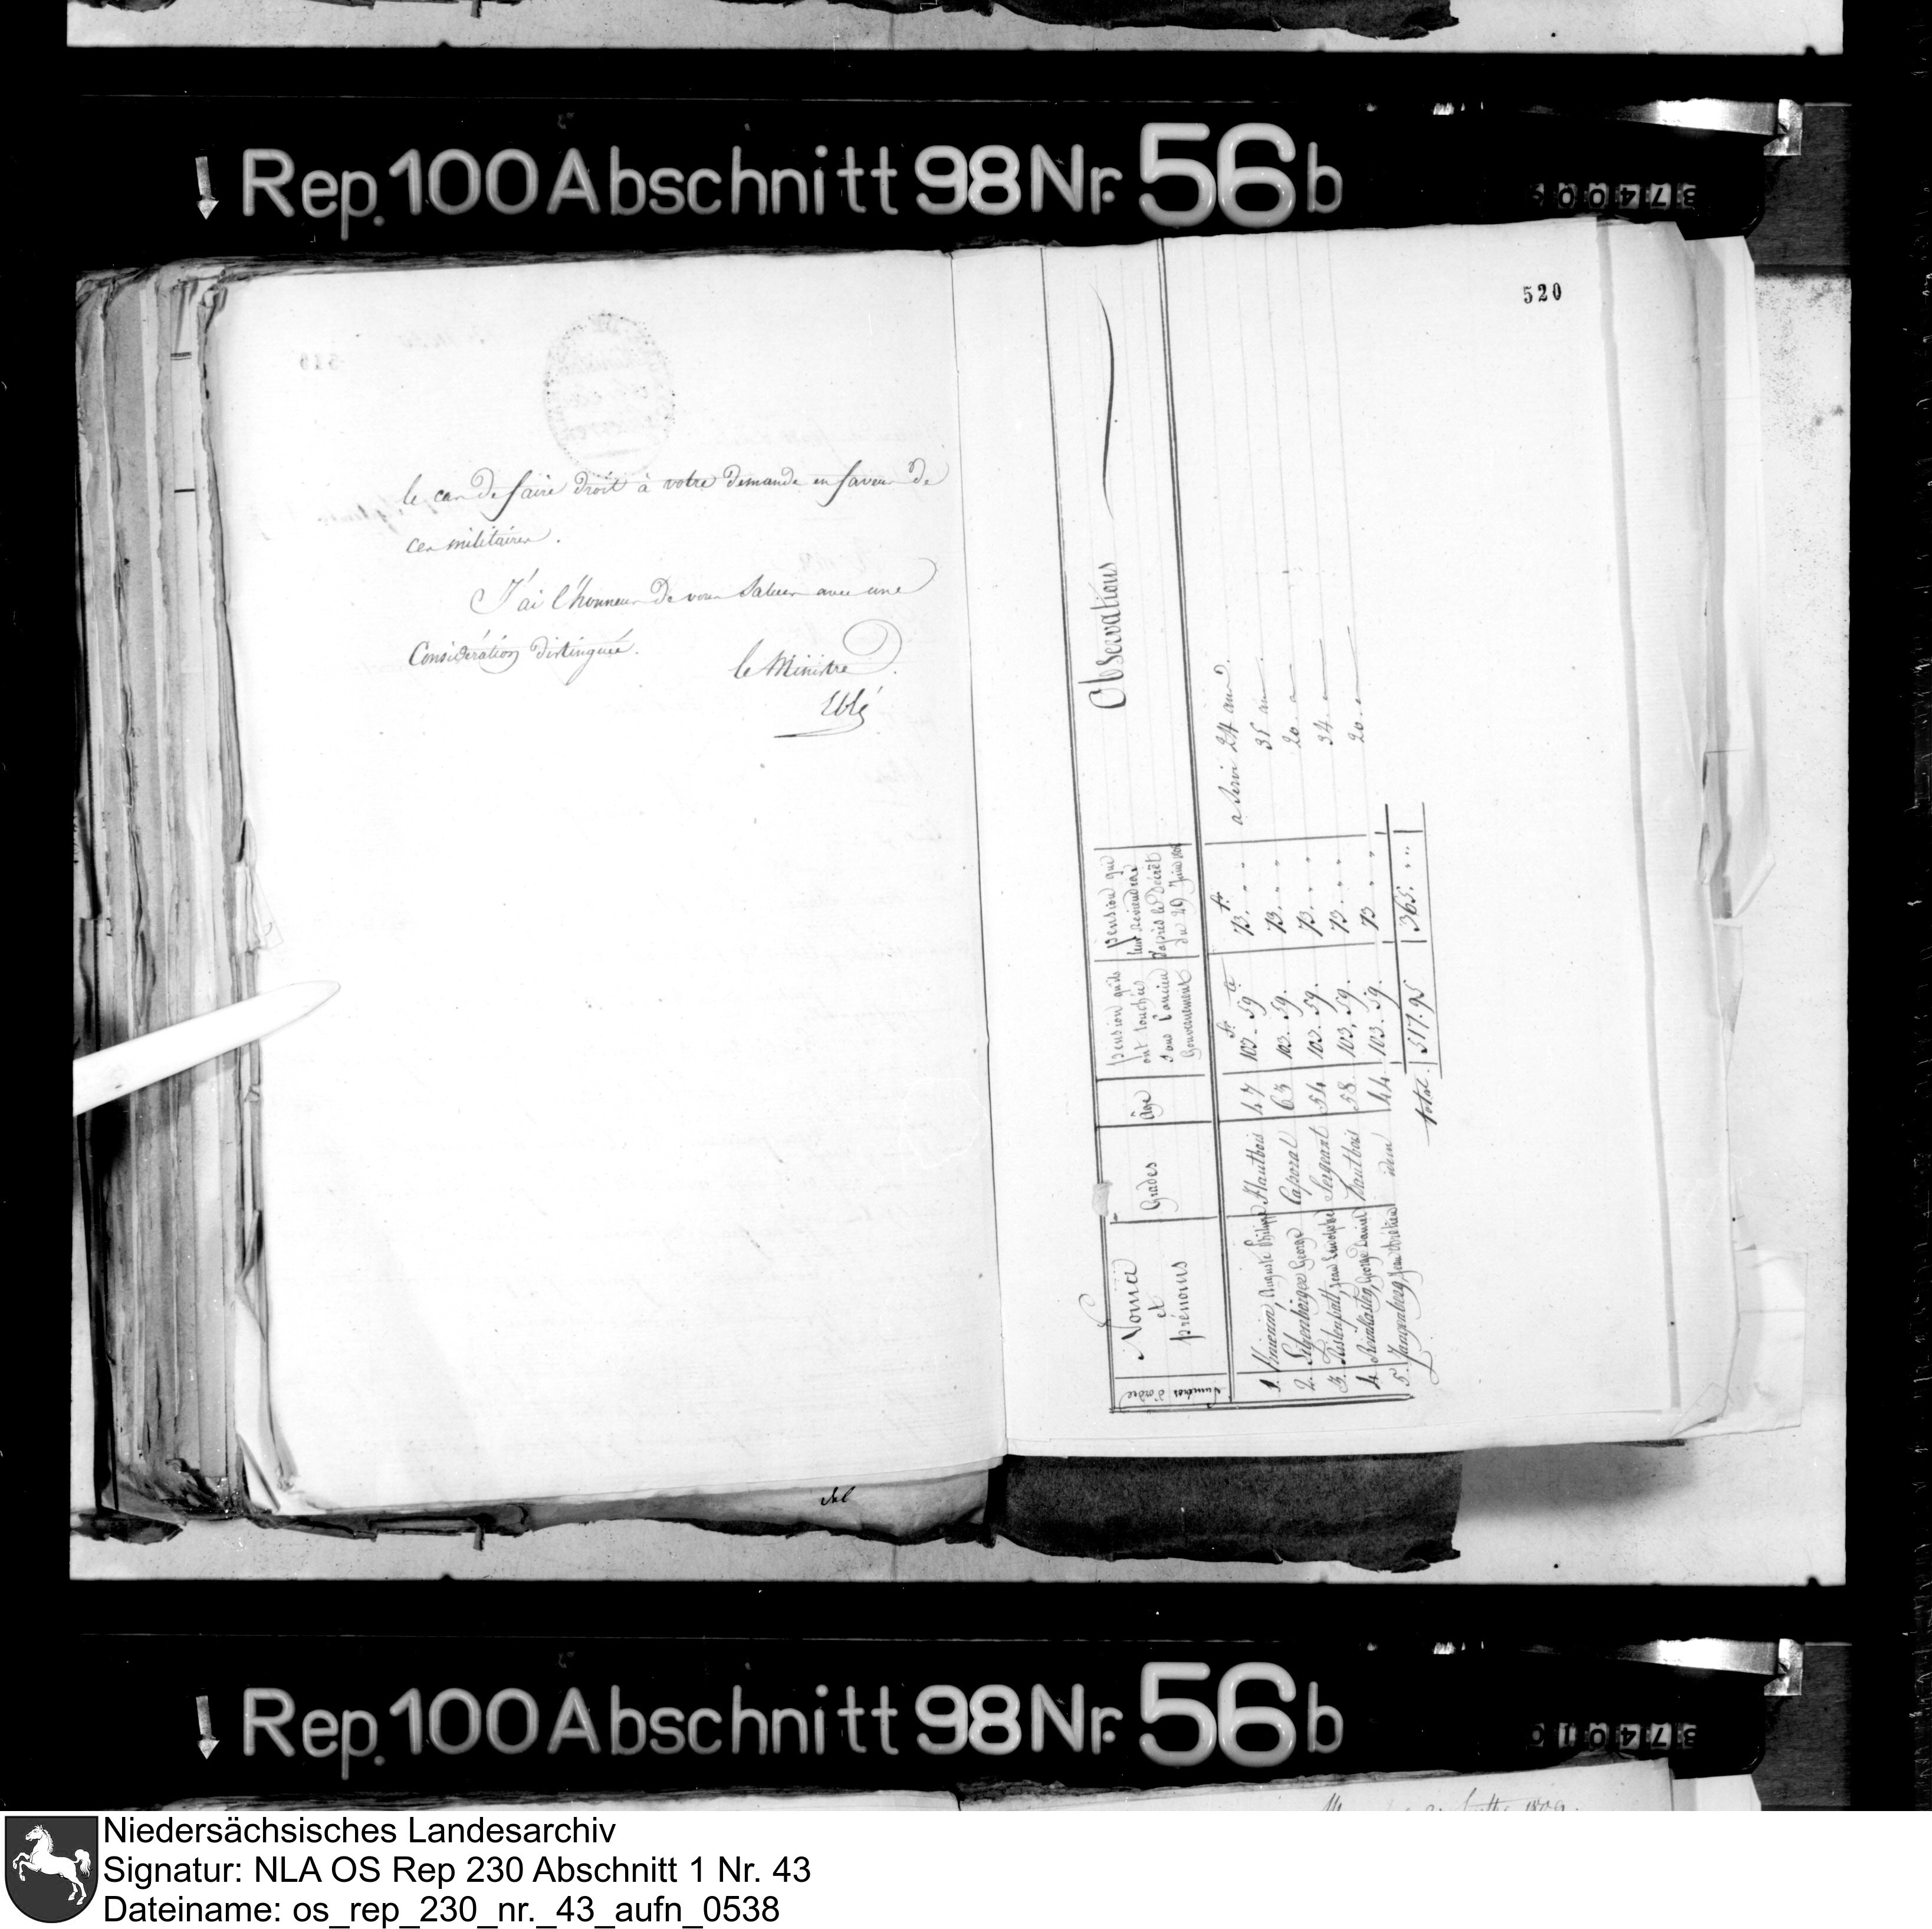 Rep. 100 Abschnitt 98 Nr. 56 b
37400
le cas de faire droit à votre demande en faveur de
ces militaires.
J'ai l'honneur de vous saluer avec une
Considération distinguée.
le Ministre
Eblé
520
Numéros d'ordre
Noms et prénoms
Grades
Âge
pension qu'ils ont touchée sous l'ancien Gouvernement
pension qui leur reviendra d'après le Décret du 29 Juin 1808
Observations
1. Auguste Philippe Hautbois 47 103. 59 73. " " a servi 24 ans.
2. George Caporal 63 103. 59. 73. " " 35 ans
3. Jean Sergeant 54 103. 59. 73. " " 20 "
4. George Daniel hautbois 58 103. 59. 73. " " 34 "
5. Langenberg, Jean Chrétien idem 44 103. 59. 73 " " 20 "
total. 517. 95 365. " "
Rep. 100 Abschnitt 98 Nr. 56 b
374010
Niedersächsisches Landesarchiv
Signatur: NLA OS Rep 230 Abschnitt 1 Nr. 43
Dateiname: os_rep_230_nr._43_aufn_0538